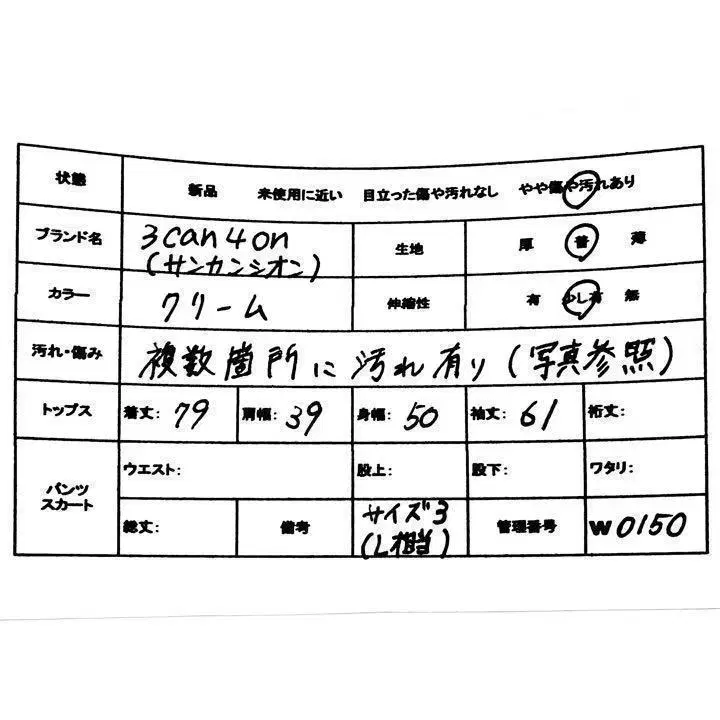 状態 新品 未使用に近い 目立った傷や汚れなし やや傷や汚れあり
ブランド名 3can4on 生地 厚 普 薄
(サンカンシオン)
カラー クリーム 伸縮性 有 少し有 無
汚れ・傷み 複数箇所に汚れ有り(写真参照)
トップス 着丈: 79 肩幅: 39 身幅: 50 袖丈: 61 裄丈:
パンツ スカート ウエスト: 股上: 股下: ワタリ:
総丈: 備考 サイズ3 (L相当) 管理番号 W0150